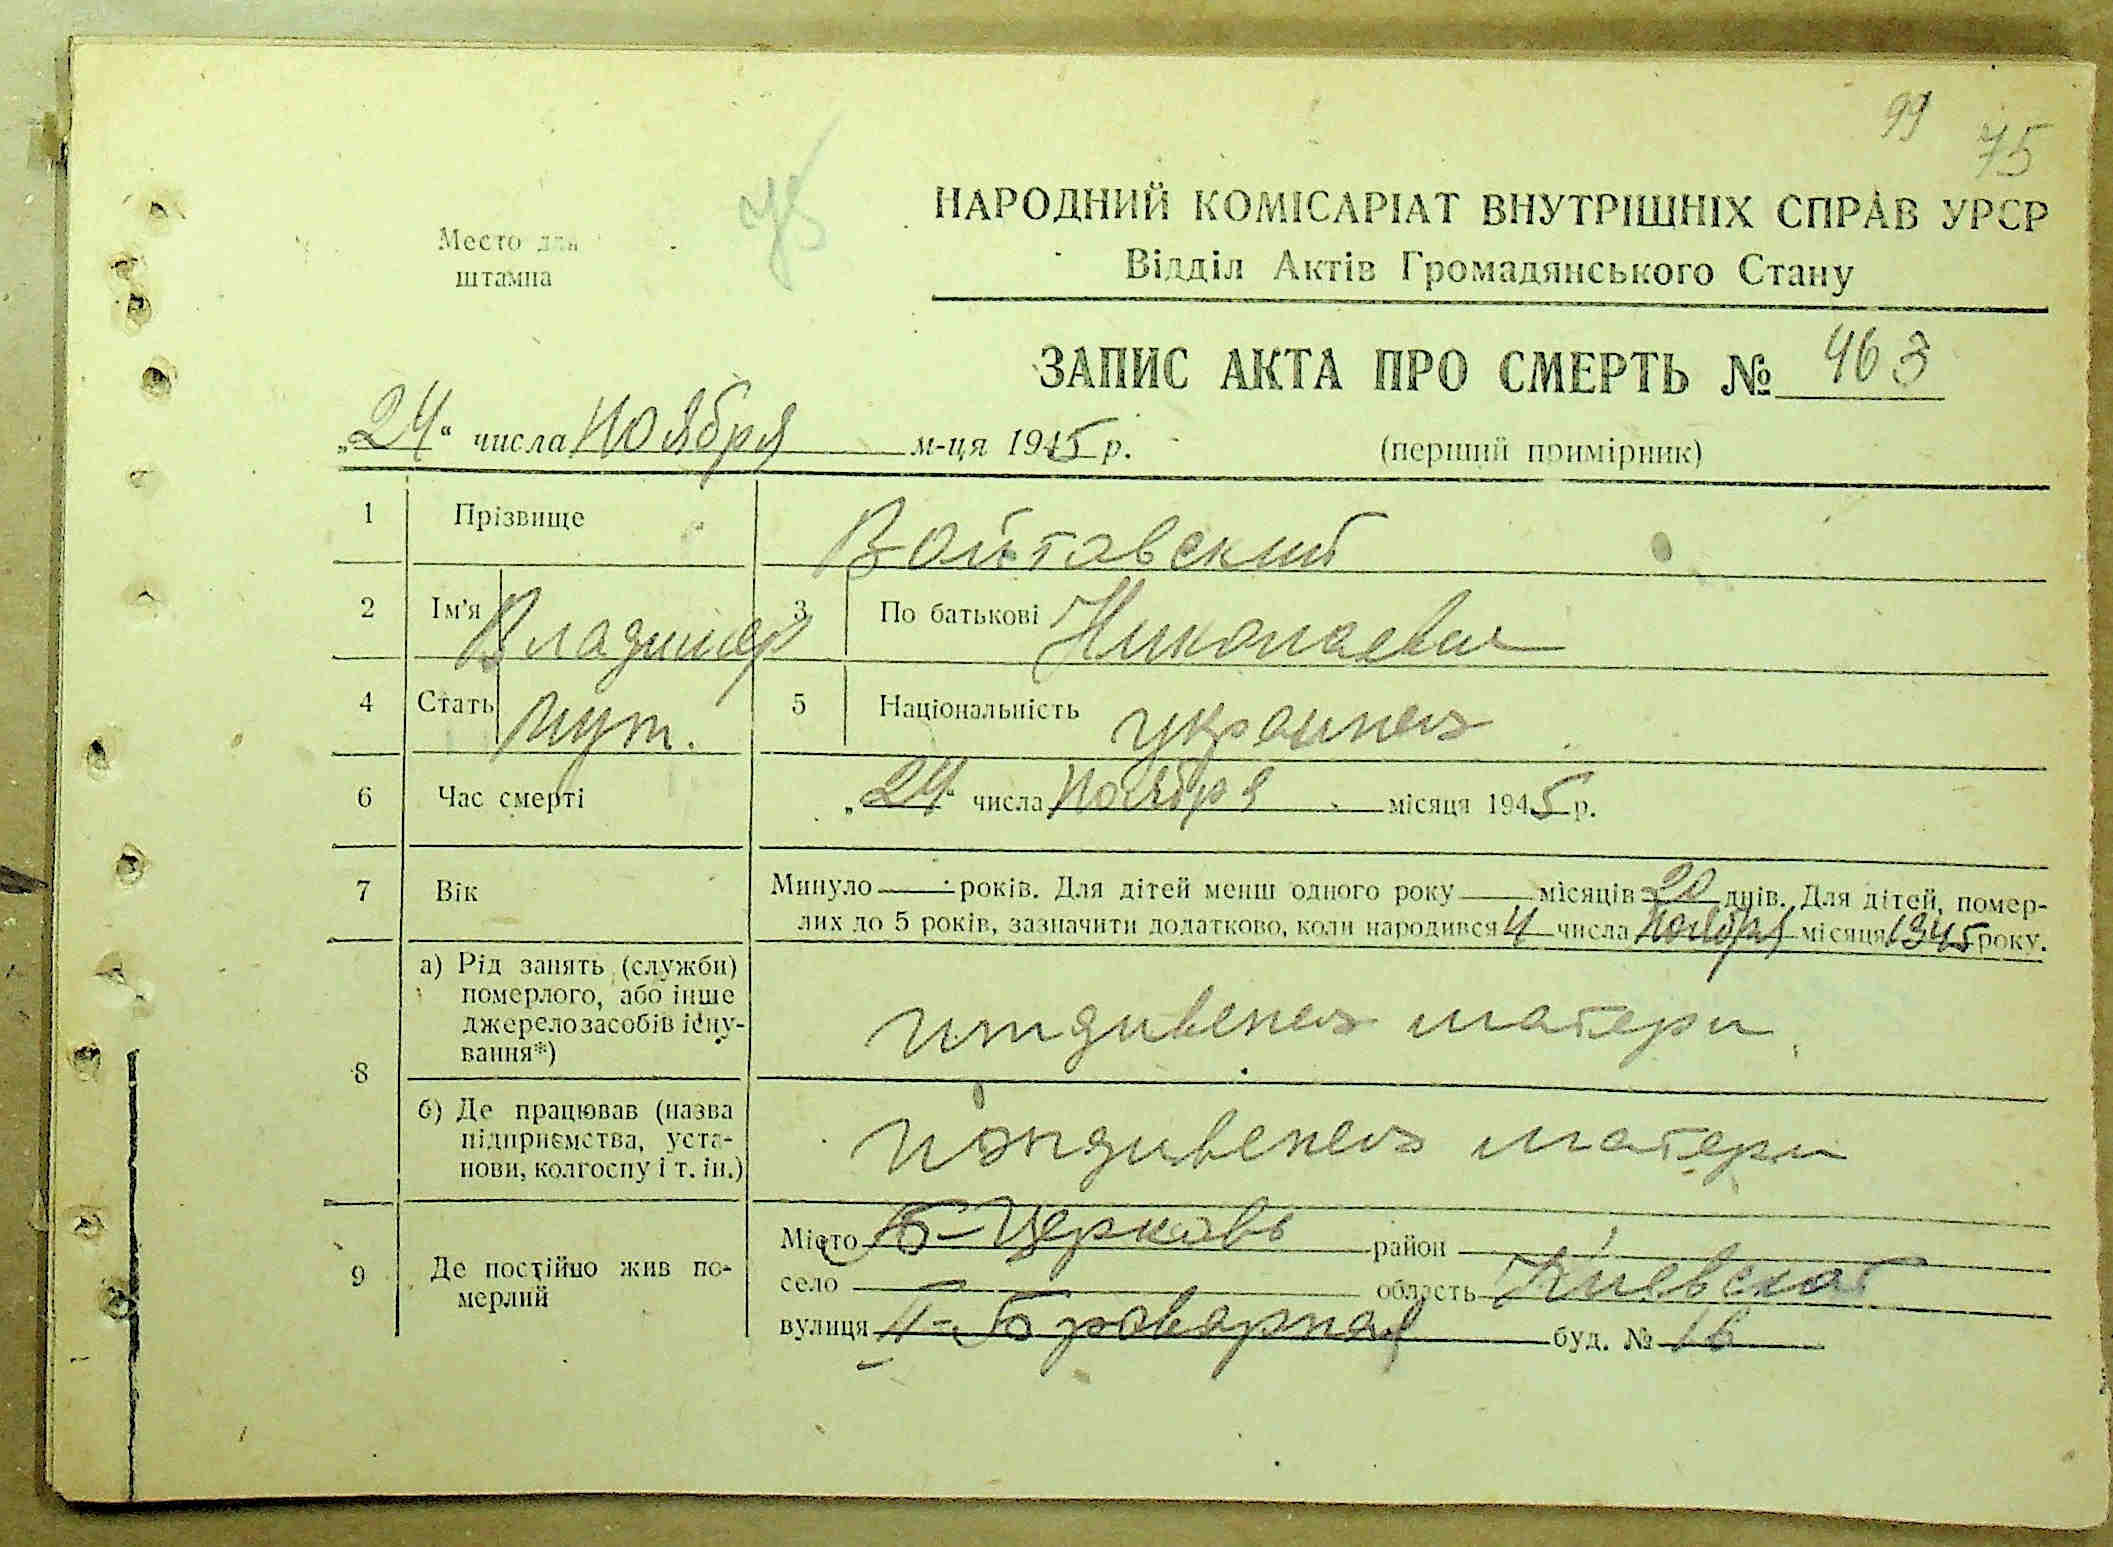 99
75
Место для
штампа
НАРОДНИЙ КОМІСАРІАТ ВНУТРІШНІХ СПРАВ УРСР
Відділ Актів Громадянського Стану
ЗАПИС АКТА ПРО СМЕРТЬ № 463
„24“ числа Ноября м-ця 1945 р. (перший примірник)
1 Прізвище Войтовский
2 Ім'я Владимир 3 По батькові Николаевич
4 Стать муж. 5 Національність украинец
6 Час смерті „24“ числа Ноября місяця 1945 р.
7 Вік Минуло — років. Для дітей менш одного року — місяців 20 днів. Для дітей, помер-
лих до 5 років, зазначити додатково, коли народився 4 числа Ноября місяця 1945 року.
8 а) Рід занять (служби)
померлого, або інше
джерело засобів існу-
вання*)
иждивенец матери
б) Де працював (назва
підприємства, уста-
нови, колгоспу і т. ін.)
иждивенец матери
9 Де постійно жив по-
мерлий
Місто Б-Церковь район —
село — область Киевская
вулиця П-Броварная буд. № 16